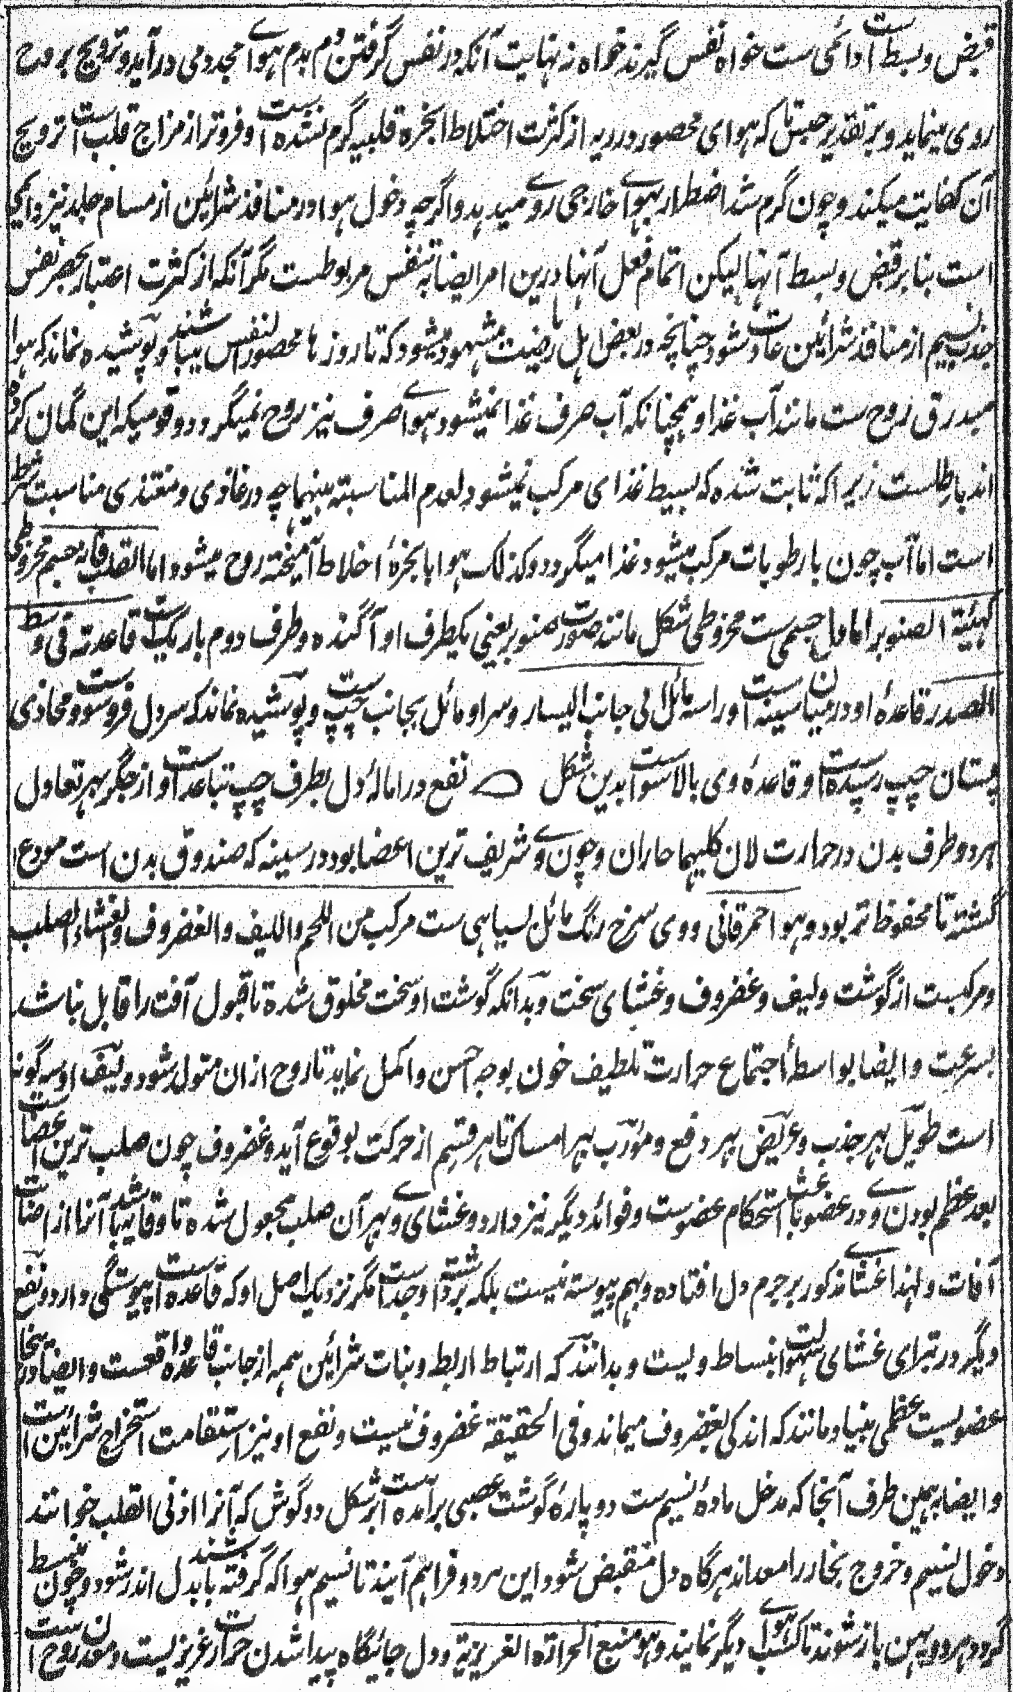 قبض و بسط ا دائمی ست خواه نفس گیرند خواه ز نهایت آنکه در نفس گرفتن دم بدم هوای مجدد می درآید و ترویح بروح
روی مینماید و بر تقدیر حبس تا که هوای محصور در ریه از کثرت اختلاط ابخره قلبیه گرم نشده است و فروتر از مزاج قلب است ترویح
آن کفایت میکند و چون گرم شد اضطرار بهوای خارجی روی میدهد و اگرچه دخول هوا در منافذ شرائین از مسام جلد نیز دائمی
است بنا بر قبض و بسط آنها لیکن اتمام فعل آنها درین امر ایضا به تنفس مربوط ست مگر آنکه از کثرت اعتبار بحصر نفس
جذب نسیم از منافذ شرائین عادت شود چنانچه در بعض اهل ریاضت مشهود میشود که تا روزها محصور النفس میباشند و پوشیده نماند که هوا
مبدرق روح ست مانند آب غذا و همچنانکه آب صرف غذا نمیشود هوای صرف نیز روح نمیگردد و قومیکه این گمان کرده
اند باطلست زیراکه ثابت شده که بسیط غذای مرکب نمیشود لعدم المناسبته بینهما چه در غاذی و مغتذی مناسبت شرط
است اما آب چون با رطوبات مرکب میشود غذا میگردد و کذلک هوا با بخرهٔ اخلاط آمیخته روح میشود اما القلب فانه جسم مخروطی
کهیئة الصنوبر اما دل جسمی ست مخروطی شکل مانند صورت صنوبر یعنی یکطرف او آگنده و طرف دوم باریک ست قاعدته فی وسط
الصدر قاعدهٔ او در میان سینه است و راسه مائل الی جانب الیسار و سر او مائل بجانب چپ ست و پوشیده نماند که سر دل فروسو ست و محاذی
پستان چپ رسیده است و قاعدهٔ وی بالاسو ست بدین شکل نفع در امالهٔ دل بطرف چپ تباعد اوست از جگر بهر تعادل
هر دو طرف بدن در حرارت لان کلیهما حاران و چون وی شریف ترین اعضا بود در سینه که صندوق بدن است مودع
گشته تا محفوظ تر بود و هو احمر قانی و وی سرخ رنگ مائل بسیاهی ست مرکب من اللحم واللیف والغضروف والغشاء الصلب
و مرکبست از گوشت و لیف و غضروف و غشای سخت و بدانکه گوشت او سخت مخلوق شده تا قبول آفت را قابل نباشد
بسرعت و ایضا بواسطهٔ اجتماع حرارت تلطیف خون بوجه احسن و اکمل نماید تا روح ازان متولد شود و لیف او سه گونه
است طویل بهر جذب و عریض بهر دفع و مورب بهر امساک تا هر قسم از حرکت بوقوع آید و غضروف چون صلب ترین اعضاست
بعد عظم بودن وی در عضو باعث استحکام عضوست و فوائد دیگر نیز دارد و غشای وی بهر آن صلب مجعول شده تا وقایه باشد آنرا از اصابت
آفات و لهذا غشا مذکور بر جرم دل افتاده و بهم پیوسته نیست بلکه برداشته است و جدا مگر نزدیک اصل او که قاعده است پیوستگی دارد و نفع
دیگر در تبرای غشای سهولت انبساط ویست و بدانند که ارتباط اربطه و بنات شرائین همه از جانب قاعده واقعست و ایضا در اینجا
عضویست عظمی بنیاد مانند که اندکی بغضروف میماند و فی الحقیقة غضروف نیست و نفع او نیز استقامت استخراج شرائین است
و ایضا بهمین طرف آنجا که مدخل مادهٔ نسیم ست دو پارهٔ گوشت عصبی برآمده است بر شکل دو گوش که آنرا اذنی القلب خوانند
دخول نسیم و خروج بخار را معدانه هرگاه دل منقبض شود این هر دو فراهم آیند تا نسیم هوا که گرفته باشند بدل اندر شود و چون منبسط
گردد هر دو پهن باز شوند تا کسب هوای دیگر نمایند و هو منبع الحرارة الغریزیة و دل جائیگاه پیدا شدن حرارت غریزیست و معدن روح است